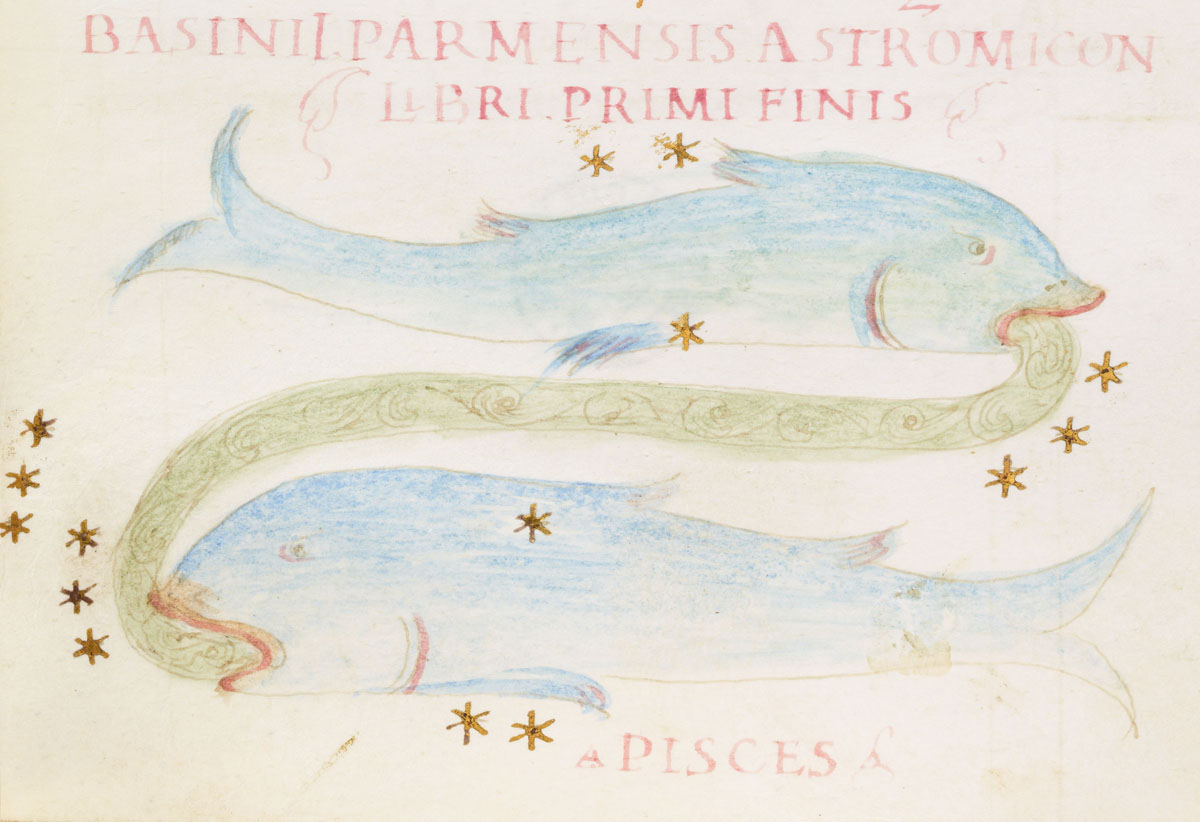 BASINII.PARMENSIS.ASTROMICON
LIBRI.PRIMI FINIS
PISCES